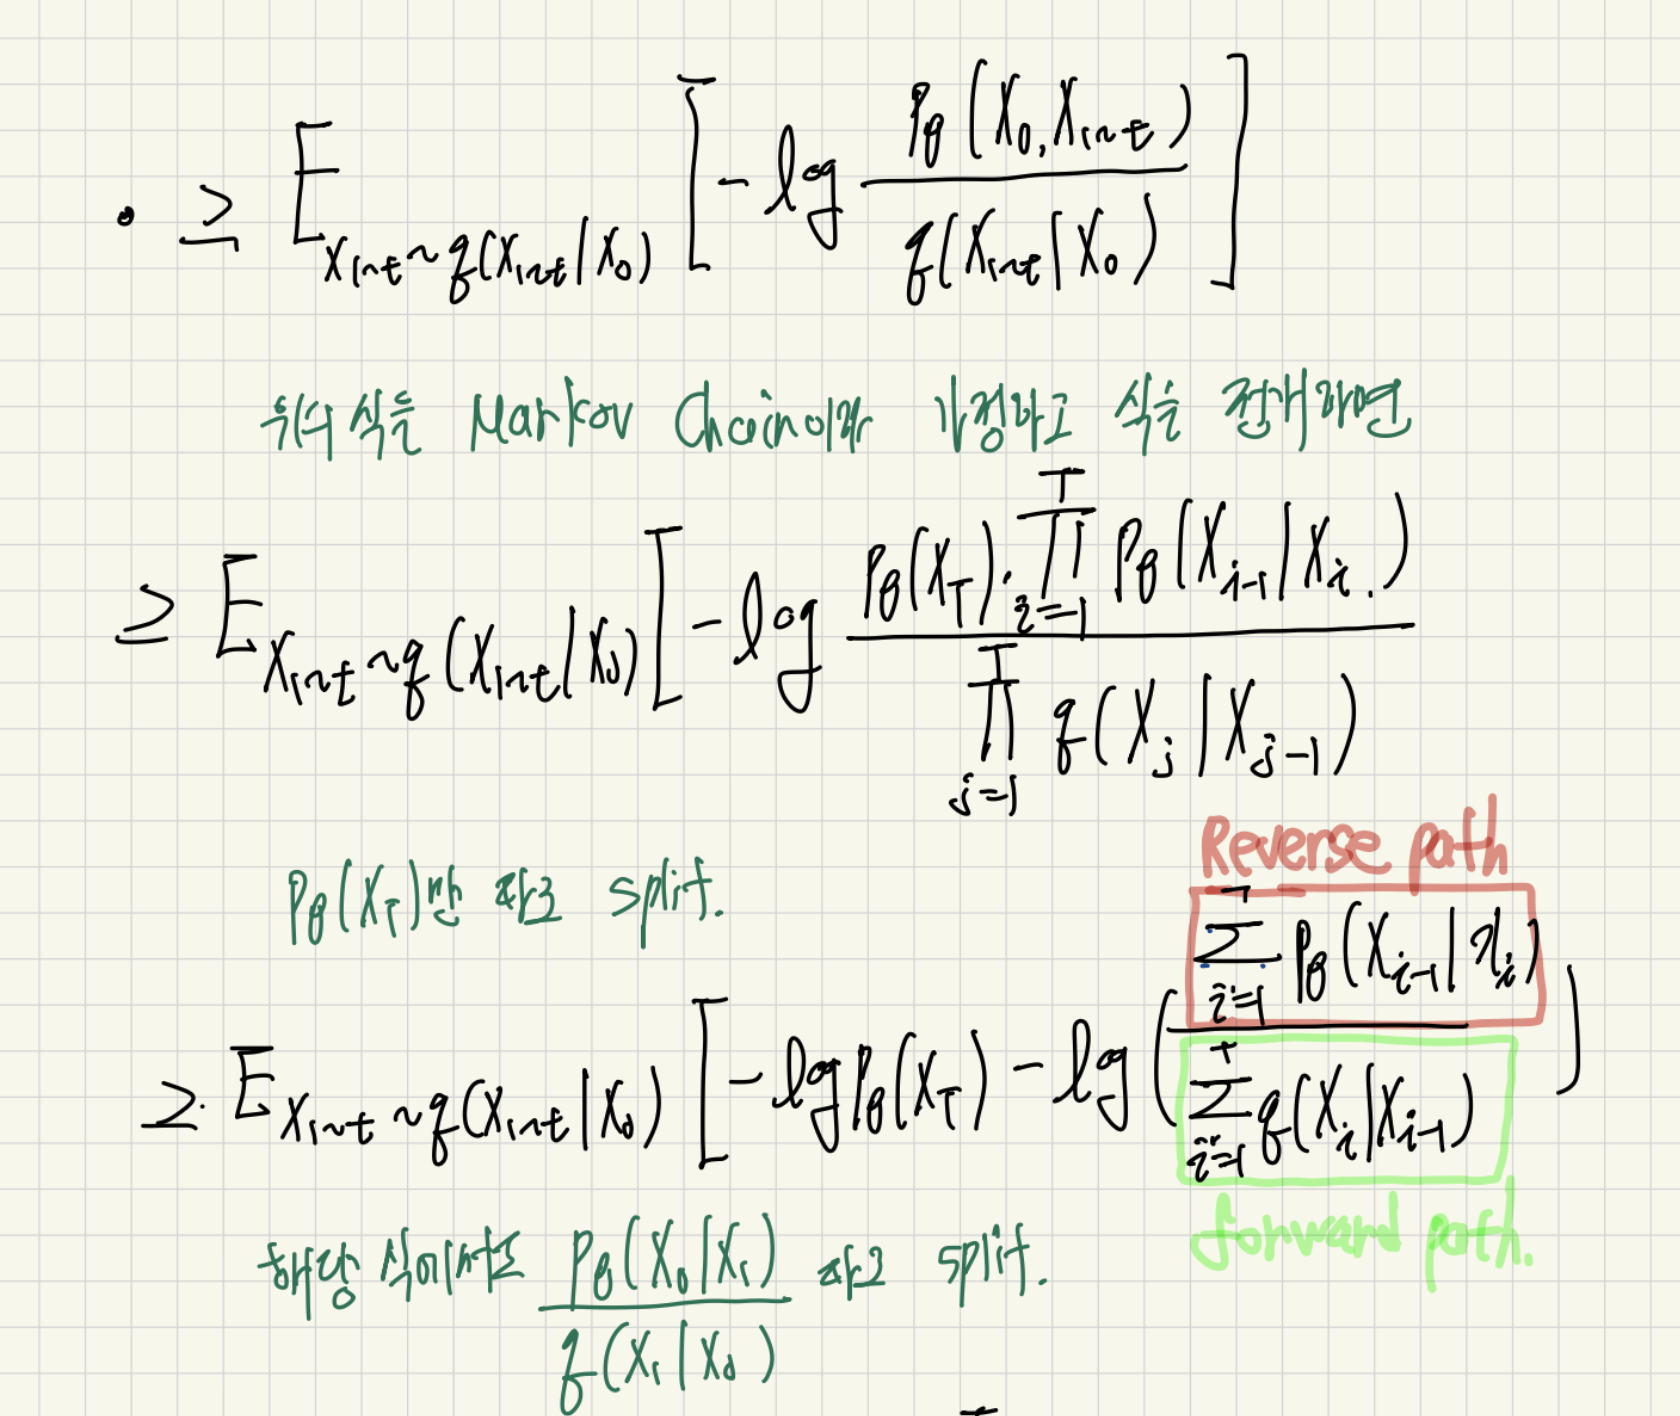 • ≥ E_{X_int ~ q(X_int | X_0)} [ -log \frac{P_θ(X_0, X_int)}{q(X_int | X_0)} ]
위의 식을 Markov Chain이라 가정하고 식을 전개하면
≥ E_{X_int ~ q(X_int | X_0)} [ -log \frac{P_θ(X_T) · ∏_{i=1}^{T} P_θ(X_{i-1} | X_i)}{∏_{j=1}^{T} q(X_j | X_{j-1})}
Reverse path
P_θ(X_T)만 split.
≥ E_{X_int ~ q(X_int | X_0)} [ -log P_θ(X_T) - log ( \frac{∑_{i=1}^{T} P_θ(X_{i-1} | x_i)}{∑_{i=1}^{T} q(X_i | X_{i-1})} ]
forward path.
해당 식에서도 \frac{P_θ(X_0 | X_1)}{q(X_1 | X_0)} split.